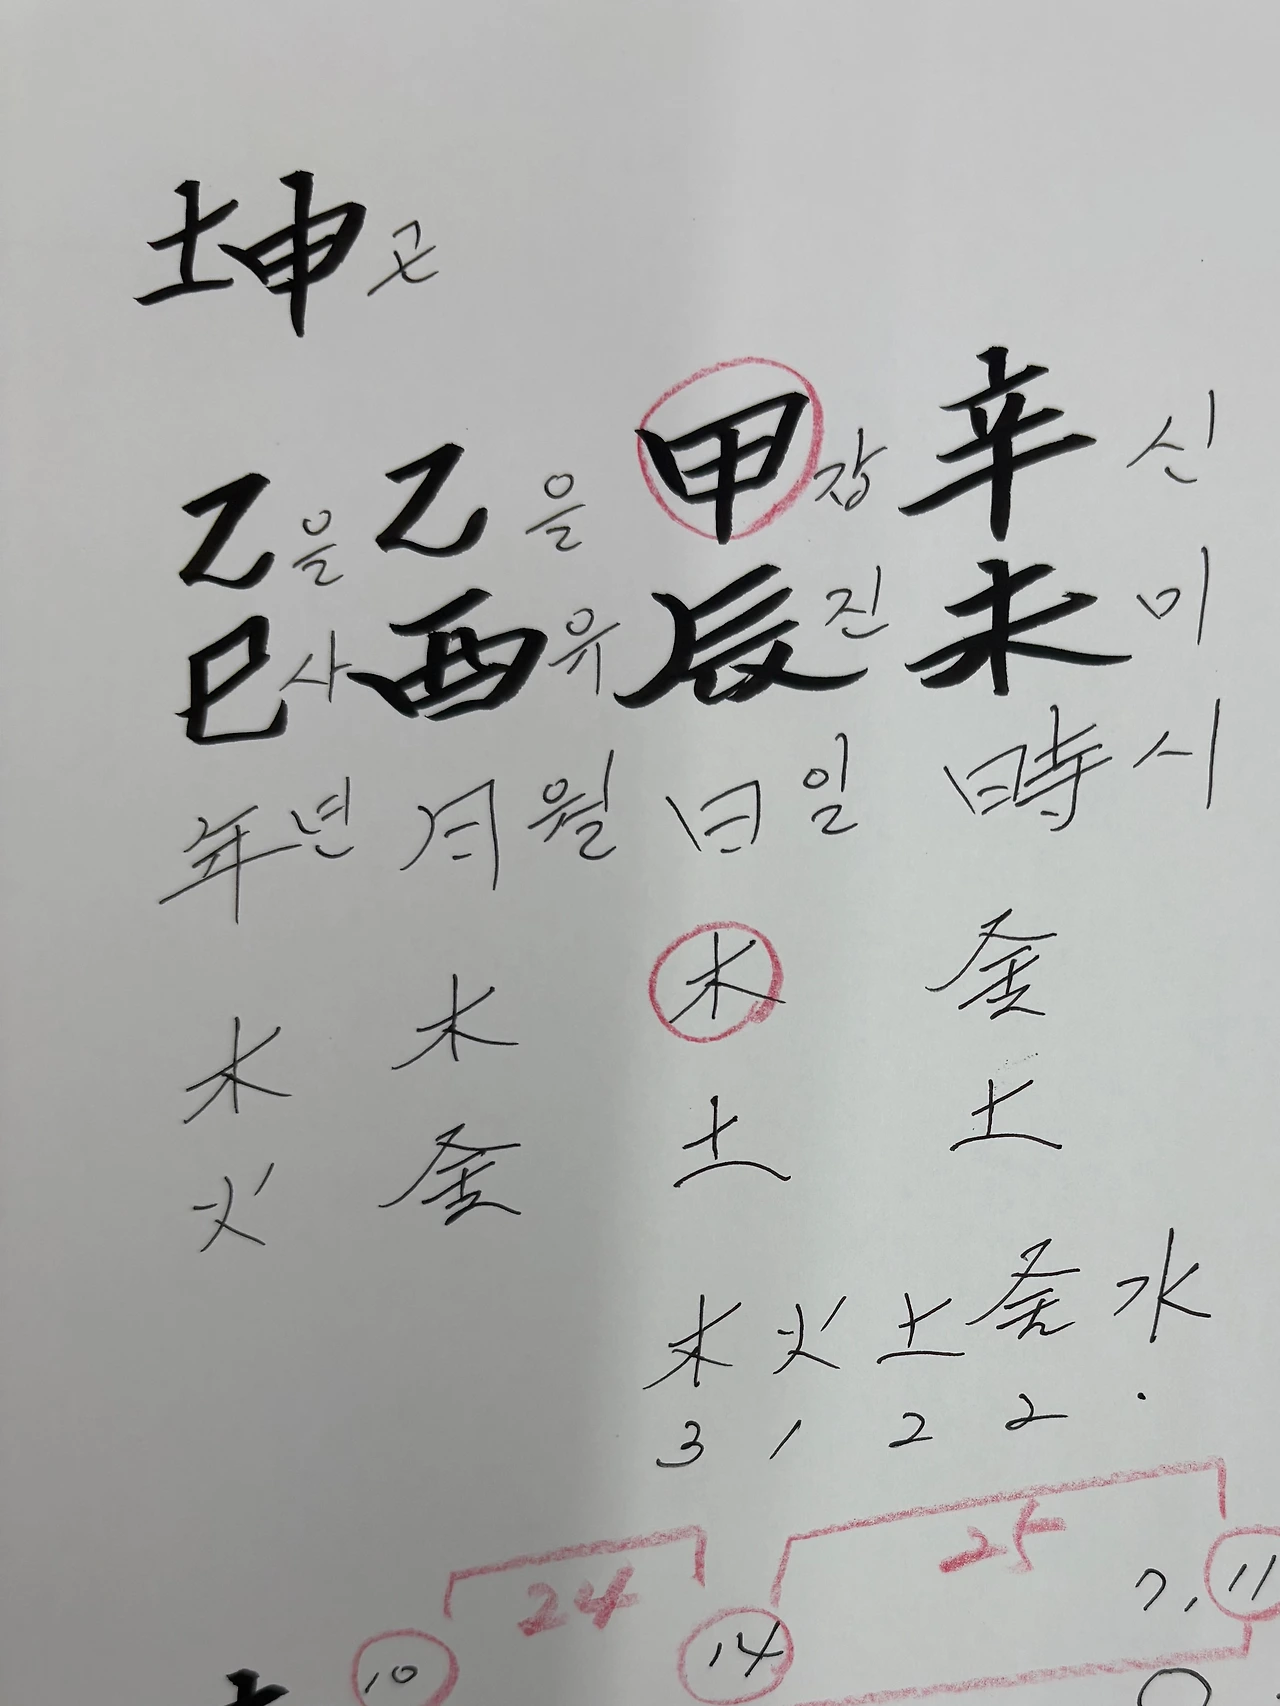 坤 곤
乙 을 乙 을 甲 갑 辛 신
巳 사 酉 유 辰 진 未 미
年 년 月 월 日 일 時 시
木 木 木 金
火 金 土 土
木 火 土 金 水
3 1 2 2 .
24 25
10 14 7, 11